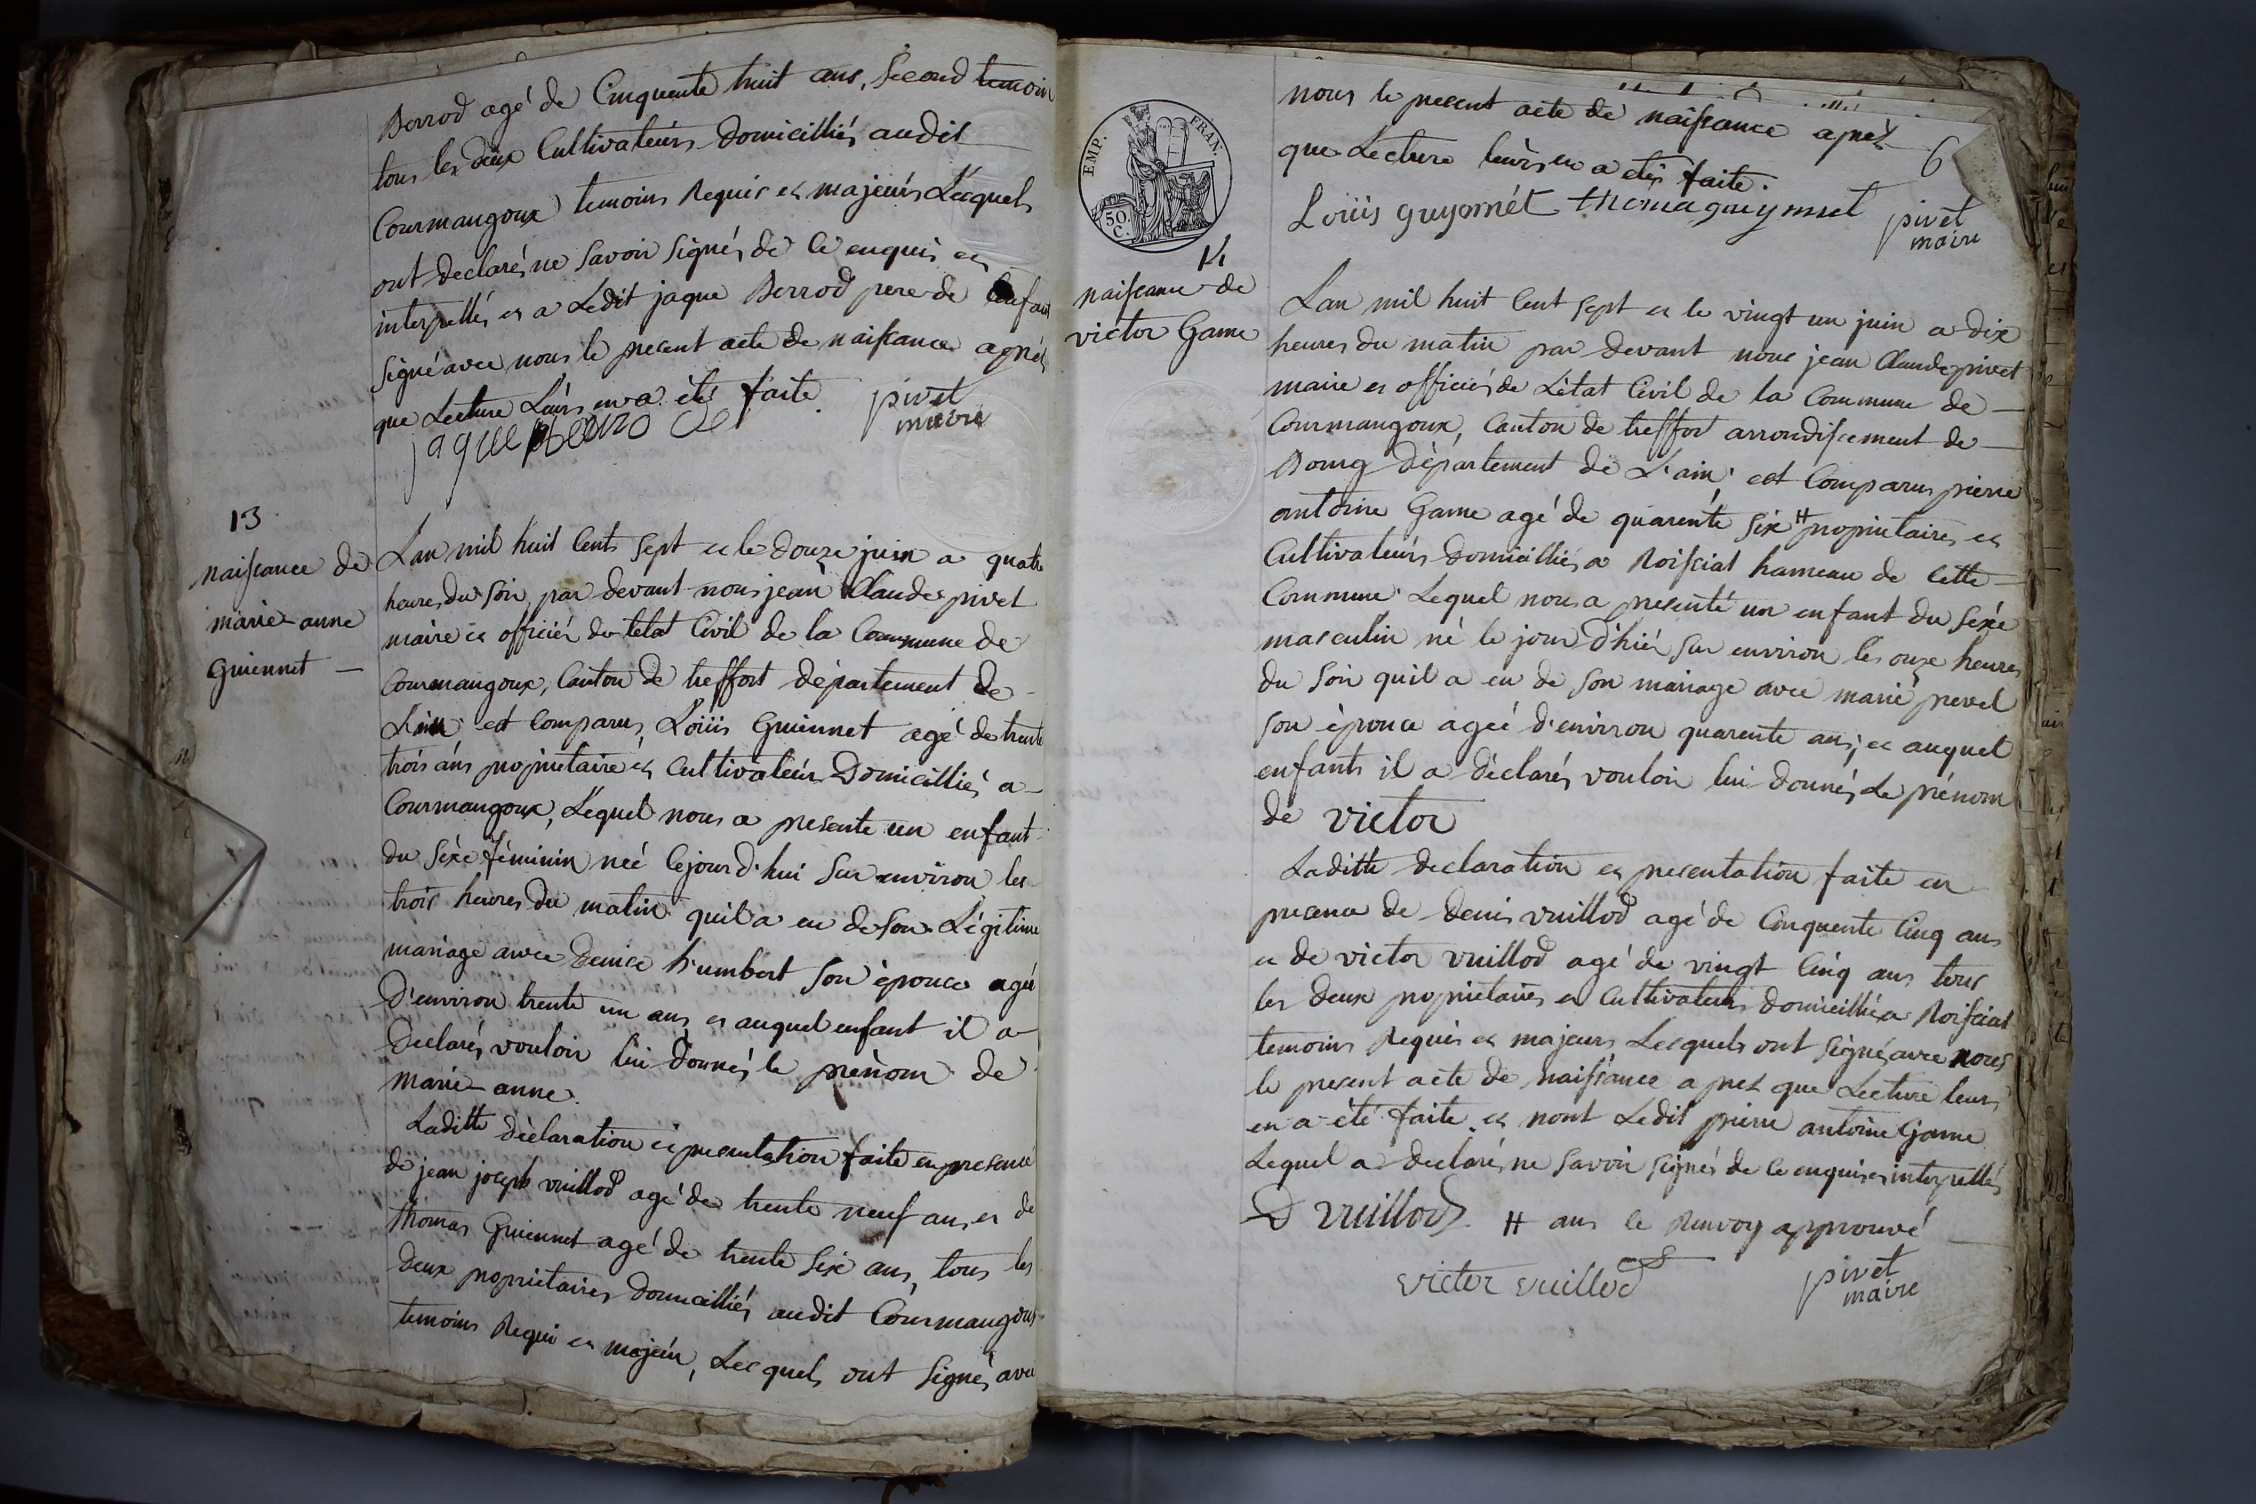 Berrod agé de Cinquente huit ans, Second temoin
tous les deux Cultivateurs Domicilliés audit
Courmangoux temoins Requis et majeurs Lesquels
ont declarés ne Savoir Signés de ce enquis et
interpellés et a Ledit jaque Berrod pere de Lenfant
Signé avec nous le present acte de naissance aprés
que Lecture Leurs en a étés faite
pivet
maire
jaque
13
naissance de
marie-anne
Guiennet
Lan mil huit Cents Sept et le douze juin a quatre
heures du Soir, par devant nous jean Claude pivet
maire et officiér de letat Civil de la Commune de
Courmangoux, Canton de treffort département de
Lain est Comparus, Loüis Guiennet agé de trente
trois ans propriétaire et Cultivateur Domicilliés a
Courmangoux, Lequel nous a presente un enfant
du Séxe féminin neé cejour d'hui Sur environ les
trois heures du matin quil a eu de Son Légitime
mariage avec Denise humbert Son èpouce agée
D'environ trente un ans et auquel enfant il a
Déclarés vouloir lui donnés le prènom de
marie-anne.
Laditte dèclaration et presentation faite en presence
de jean joseph vuillod agé de trente neuf ans et de
thomas Guiennet agé de trente Six ans, tous les
deux propriétaires Domicilliés audit Courmangoux
temoins Requis et majeur, Lesquels ont Signés avec
EMP. FRAN.
50 C.
6
nous le present acte de naissance aprés
que Lecture leurs en a étés faite.
Loüis guyonnét thomas guyennet
pivet
maire
14
naissance de
victor Game
Lan mil huit Cent Sept et le vingt un juin a dix
heures du matin par devant nous jean Claude pivet
maire et officiér de Létat Civil de la Commune de
Courmangoux, Canton de treffort arrondissement de
Bourg département de L'ain est Comparus pierre
antoine Game agé de quarente Six # propriétaires et
Cultivateurs Domicilliés a Roissiat hameau de cette
Commune Lequel nous a presenté un enfant du Séxe
masculin né le jour d'hiér Sur environ les onze heures
du Soir quil a eu de Son mariage avec marie prevel
Son épouce ageé d'environ quarente ans, et auquel
enfants il a déclarés vouloir lui donnés Le prénom
de victor
Laditte declaration et presentation faite en
presence de denis vuillod agé de Cinquente Cinq ans
et de victor vuillod agé de vingt Cinq ans tous
les deux propriétaires et Cultivateurs domicilliés a Roissiat
temoins Requis et majeurs Lesquels ont Signés avec nous
le present acte de naissance aprez que Lecture leurs
en a été faite. et nont Ledit pierre antoine Game
Lequel a déclarés ne Savoir Signés de ce enquis et interpellés
D vuillod # ans le Renvoy approuvé
victor vuillod
pivet
maire